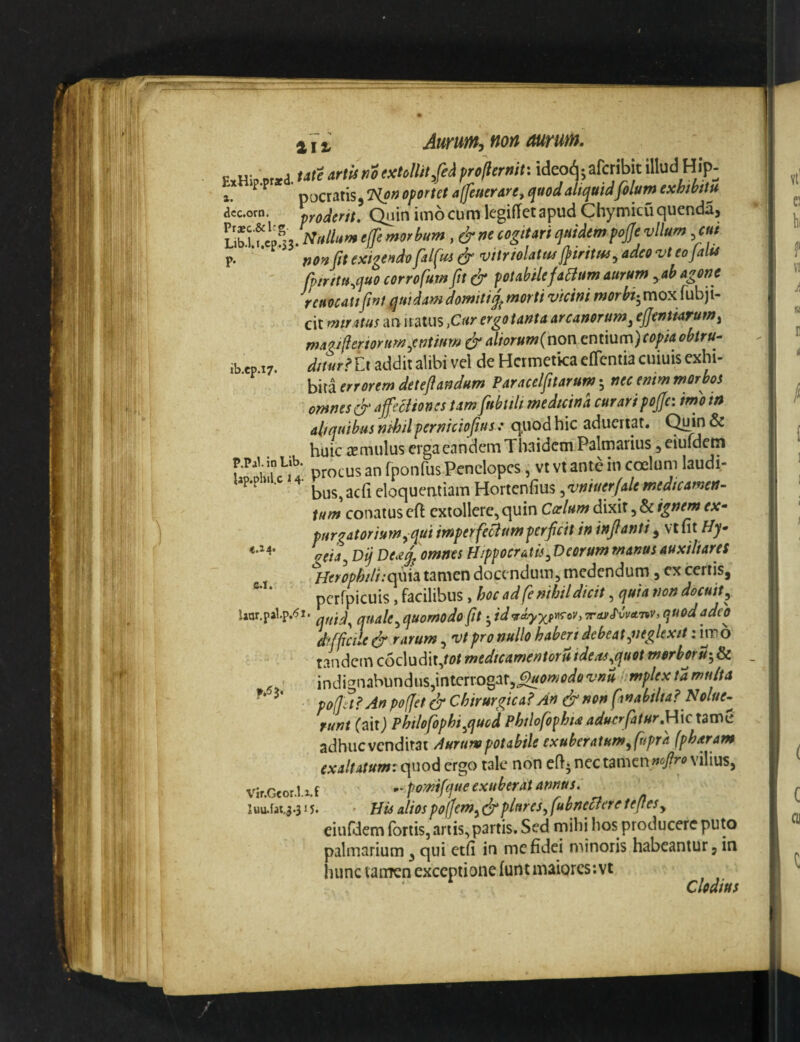 212 Aurum, non aurum.
ExHip.præd. tatē artis nō extollit, sed prosternit: ideoq; ascribit illud Hip-
2. pocratis, Non oportet asseuerare, quod aliquid solum exhibitū
dec.orn. proderit. Quin imò cum legisset apud Chymicū quendā,
Præc.&leg. Lib.1.r.ep.33. Nullum esse morbum, & ne cogitari quidem posse vllum, cui
p. non sit exigendo salsus & vitriolatus spiritus, adeo vt eo salis
spiritu, quo corrosum sit & potabile factum aurum, ab agone
reuocati sint quidam domitiq; morti vicini morbi; mox subji-
cit miratus an iratus, Cur ergo tanta arcanorum, essentiarum,
magisteriorum, entium & aliorum (non entium) copia obtru-
ib.ep.17. ditur? Et addit alibi vel de Hermetica essentia cuiuis exhi-
bitâ errorem detestandum Paracelsitarum; nec enim morbos
omnes & affectiones tam subtili medicinâ curari posse: imò in
aliquibus nihil perniciosius: quod hic aduertat. Quin &
huic æmulus erga eandem Thaidem Palmarius, eiusdem
P.Pal. in Lib. lap.phil.c 14. procus an sponsus Penelopes, vt vt antè in cœlum laudi-
bus, acsi eloquentiam Hortensius, vniuersale medicamen-
tum conatus est extollere, quin Cælum dixit, & ignem ex-
purgatorium, qui imperfectum perficit in instanti, vt sit Hy-
c.24. geia, Dij Deæq; omnes Hippocratis, Deorum manus auxiliares
c.1. Herophili: quia tamen docendum, medendum, ex certis,
perspicuis, facilibus, hoc ad se nihil dicit, quia non docuit,
laur.pal.p.61. quid, quale, quomodo sit; id quod adeo
difficile & rarum, vt pro nullo haberi debeat, neglexit: imò
tandem cōcludit, tot medicamentorū ideas, quot morborū; &
p.63. indignabundus, interrogat, Quomodo vnū simplex tā multa
possit? An posset & Chirurgica? An & non sanabilia? Nolue-
runt (ait) Philosophi, quod Philosophia aduersatur. Hic tamē
adhuc venditat Aurum potabile exuberatum, supra sphæram
exaltatum: quod ergo tale non est; nec tamen nostro vilius,
Vir.Geor.l.2.f -- pomisque exuberat annus.
Iuu.sat.3.315. His alios possem, & plures, subnectere testes,
eiusdem sortis, artis, partis. Sed mihi hos producere puto
palmarium, qui etsi in me fidei minoris habeantur, in
hunc tamen exceptione sunt maiores: vt
Clodius